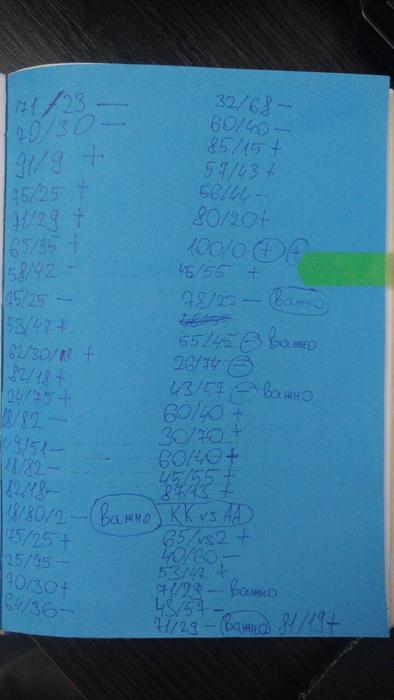 71/23 —
70/30 —
91/9 +
75/25 +
71/29 +
65/35 +
58/42 -
75/25 —
53/47 +
62/30/8 +
82/18 +
24/75 +
18/82 —
49/51 —
18/82 —
82/18 —
18/80/2 — важно KK vs AA
75/25 +
25/75 —
70/30 +
64/36 —
32/68 —
60/40 —
85/15 +
57/43 +
56/44 —
80/20 +
100/0 + +
45/55 +
78/22 — важно
55/45 — важно
26/74 —
43/57 — важно
60/40 +
30/70 +
60/40 +
45/55 +
87/13 +
65/vs2 +
40/60 —
53/47 +
71/29 — важно
43/57 —
71/29 — важно 81/19 +